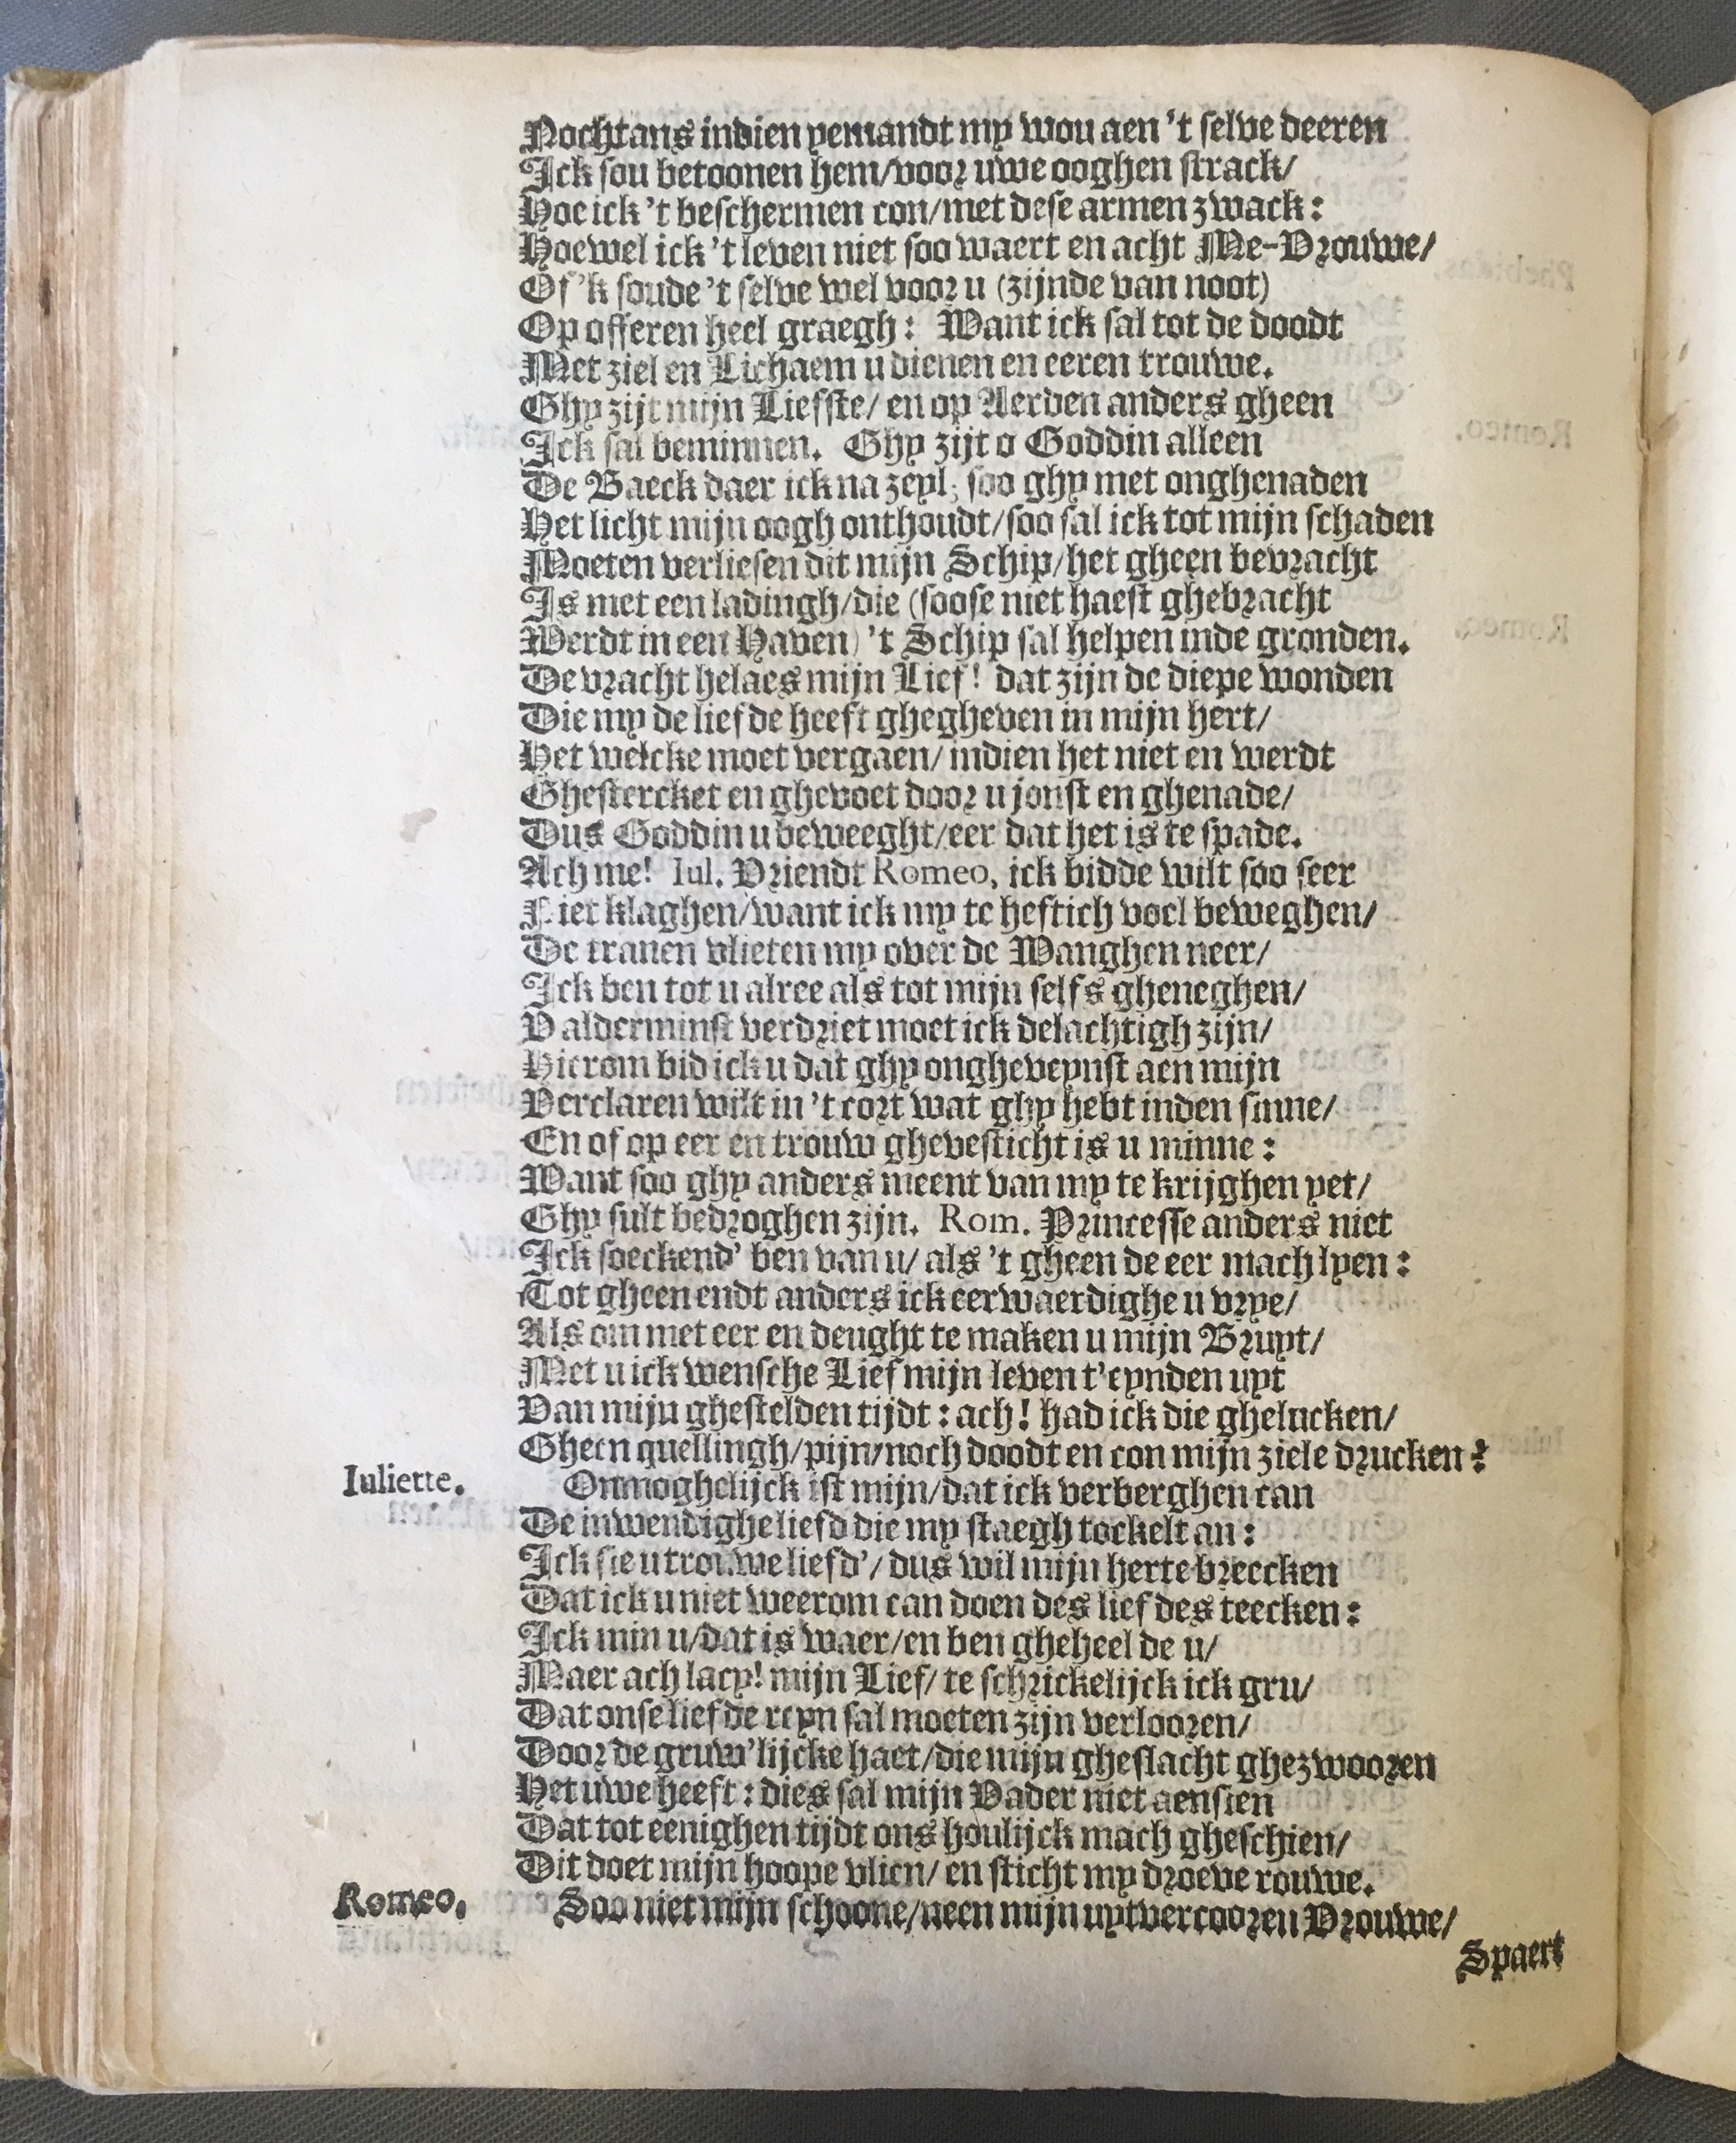 Nochtans indien yemandt my wou aen 't selve deeren
Ick sou betoonen hem/voor uwe ooghen strack/
Hoe ick 't beschermen con/met dese armen zwack:
Hoewel ick 't leven niet soo waert en acht Me-Vrouwe/
Of 'k soude 't selve wel voor u (zijnde van noot)
Op offeren heel graegh: Want ick sal tot de doodt
Met ziel en Lichaem u dienen en eeren trouwe.
Ghy zijt mijn Liefste/ en op Aerden anders gheen
Ick sal beminnen. Ghy zijt o Goddin alleen
De Baeck daer ick na zeyl; soo ghy met onghenaden
Het licht mijn oogh onthoudt/soo sal ick tot mijn schaden
Moeten verliesen dit mijn Schip/het gheen bevracht
Is met een ladingh/die (soose niet haest ghebracht
Werdt in een Haven) 't Schip sal helpen inde gronden.
De vracht helaes mijn Lief! dat zijn de diepe wonden
Die my de liefde heeft ghegheven in mijn hert/
Het welcke moet vergaen/ indien het niet en werdt
Ghestercket en ghevoet door u jonst en ghenade/
Dus Goddin u beweeght/eer dat het is te spade.
Ach me! Iul. Vriendt Romeo, ick bidde wilt soo seer
Niet klaghen/want ick my te heftich voel beweghen/
De tranen vlieten my over de Wanghen neer/
Ick ben tot u alree als tot mijn selfs gheneghen/
V alderminst verdriet moet ick delachtigh zijn/
Hierom bid ick u dat ghy ongheveynst aen mijn
Verclaren wilt in 't cort wat ghy hebt inden sinne/
En of op eer en trouw ghevesticht is u minne:
Want soo ghy anders meent van my te krijghen yet/
Ghy sult bedroghen zijn. Rom. Princesse anders niet
Ick soeckend' ben van u/ als 't gheen de eer mach lyen:
Tot gheen endt anders ick eerwaerdighe u vrye/
Als om met eer en deught te maken u mijn Bruyt/
Met u ick wensche Lief mijn leven t'eynden uyt
Van mijn ghestelden tijdt: ach! had ick die ghelucken/
Gheen quellingh/pijn/noch doodt en con mijn ziele drucken:
Iuliette. Onmoghelijck ist mijn/dat ick verberghen can
De inwendighe liefd die my staegh tockelt an:
Ick sie u trouwe liefd'/ dus wil mijn herte breecken
Dat ick u niet weerom can doen des liefdes teecken:
Ick min u/dat is waer/en ben gheheel de u/
Maer ach lacy! mijn Lief/ te schrickelijck ick gru/
Dat onse liefde reyn sal moeten zijn verlooren/
Door de gruw'lijcke haet/die mijn gheslacht ghezwooren
Het uwe heeft: dies sal mijn Vader niet aensien
Dat tot eenighen tijdt ons houlijck mach gheschien/
Dit doet mijn hoope vlien/ en sticht my droeve rouwe.
Romeo. Soo niet mijn schoone/neen mijn uytvercooren Vrouwe/
Spaert